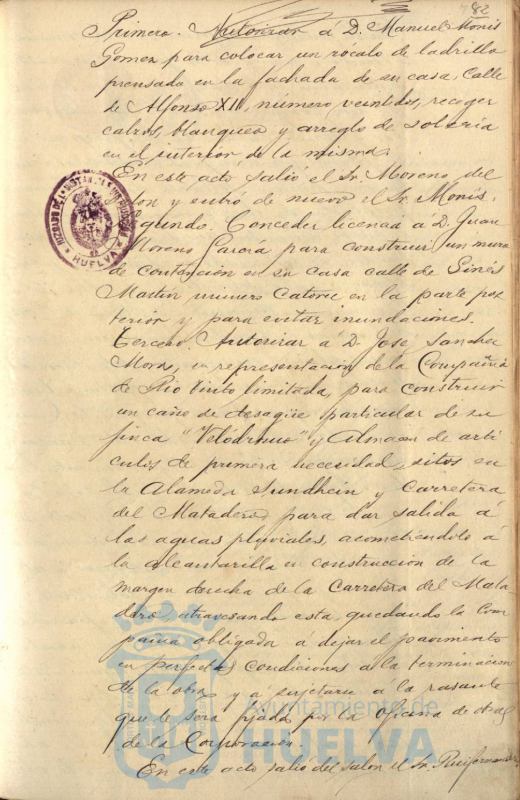 782
Primero. Autorizar á D. Manuel Monís
Gomez para colocar un zócalo de ladrillo
prensado en la fachada de su casa, Calle
de Alfonso XII, número veintidos, recoger
cabros, blanqueo y arreglo de solería
en el interior de la misma.
En este acto salió el Sr. Moreno del
salon y entró de nuevo el Sr. Monís.
Segundo. Conceder licencia á D. Juan
Moreno García para construir un muro
de contención en su casa calle de Ginés
Martin número Catorce en la parte pos
terior y para evitar inundaciones.
Tercero. Autorizar á D. José Sanchez
Mora, en representación de la Compañia
de Rio Tinto limitada, para construir
un caño de desagüe particular de su
finca "Velódromo" y Almacen de arti
culos de primera necesidad, sitos en
la Alameda Sundhein y Carretera
del Matadero para dar salida á
las aguas pluviales, acometiendolo á
la alcantarilla en construccion de la
margen derecha de la Carretera del Mata
dero, atravesando esta, quedando la Com
pañia obligada á dejar el pavimento
en perfectas condiciones a la terminacion
de la obra y á sujetarse á la rasante
que le será fijada por la oficina de obras
de la Corporación.
En este acto salió del salon el Sr.
HUELVA
Ayuntamiento de
HUELVA